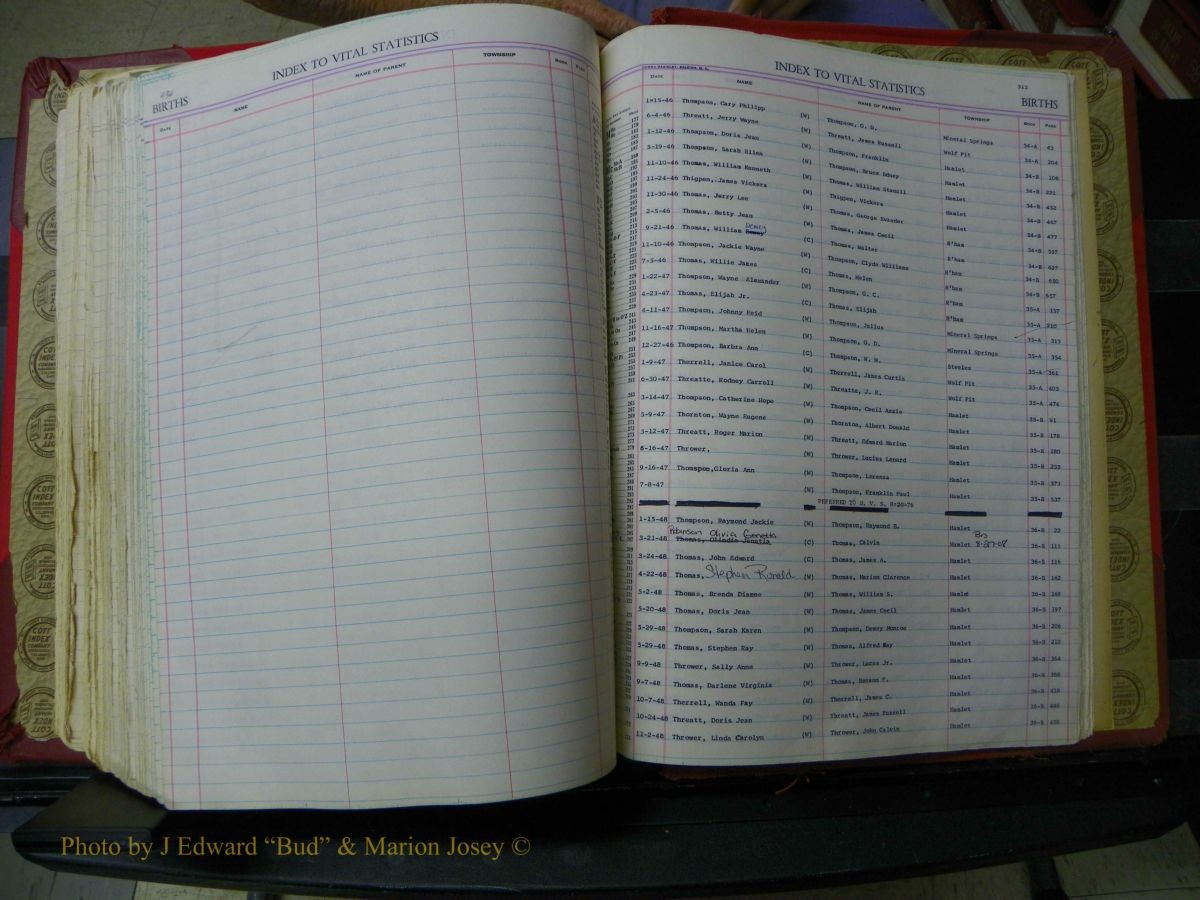 INDEX TO VITAL STATISTICS
BIRTHS
DATE NAME NAME OF PARENT TOWNSHIP BOOK PAGE
INDEX TO VITAL STATISTICS 313
BIRTHS
Date NAME NAME OF PARENT TOWNSHIP BOOK PAGE
1-15-46 Thompson, Cary Philipp (W) Thompson, G. D. Mineral Springs 34-A 43
6-4-46 Threatt, Jerry Wayne (W) Threatt, James Russell Wolf Pit 34-A 204
1-12-46 Thompson, Doris Jean (W) Thompson, Franklin Hamlet 34-B 108
5-19-46 Thompson, Sarah Ellen (W) Thompson, Bruce Edney Hamlet 34-B
11-10-46 Thomas, William Kenneth (W) Thomas, William Stancil Hamlet 34-B 452
11-24-46 Thigpen, James Vickers (W) Thigpen, Vickers Hamlet 34-B 467
11-30-46 Thomas, Jerry Lee (W) Thomas, George Evander Hamlet 34-B 477
2-5-46 Thomas, Betty Jean (W) Thomas, James Cecil R'ham 34-B
9-21-46 Thomas, William Dewey (C) Thomas, Walter R'ham 34-B 627
11-10-46 Thompson, Jackie Wayne (W) Thompson, Clyde Williams R'ham 34-B
7-5-46 Thomas, Willie James (C) Thomas, Helen R'ham 34-B 657
1-22-47 Thompson, Wayne Alexander (W) Thompson, G. C. R'ham 35-A 157
4-23-47 Thomas, Elijah Jr. (C) Thomas, Elijah R'ham 35-A 210
8-11-47 Thompson, Johnny Reid (W) Thompson, Julius Mineral Springs 35-A 313
11-16-47 Thompson, Martha Helen (W) Thompson, G. D. Mineral Springs 35-A 354
12-27-46 Thompson, Barbra Ann (C) Thompson, W. M. Steeles 35-A 361
1-9-47 Therrell, Janice Carol (W) Therrell, James Curtis Wolf Pit 35-A 403
6-30-47 Threatte, Rodney Carroll (W) Threatte, J. R. Wolf Pit 35-A 474
3-14-47 Thompson, Catherine Hope (W) Thompson, Cecil Azzie Hamlet 35-B 91
5-9-47 Thornton, Wayne Eugene (W) Thornton, Albert Donald Hamlet 35-B 178
5-12-47 Threatt, Roger Marion (W) Threatt, Edward Marion Hamlet 35-B 180
8-16-47 Thrower, (W) Thrower, Lucius Lenard Hamlet 35-B 233
9-16-47 Thomspon,Gloria Ann (W) Thompson, Lorenza Hamlet 35-B 373
7-8-47 (W) Thompson, Franklin Paul Hamlet 35-B 537
REFERRED TO B. V. S. 8-20-76
1-15-48 Thompson, Raymond Jackie (W) Thompson, Raymond B. Hamlet 36-B 22
Robinson Olivia Genetta
3-21-48 Thomas, Olindia Jenatia (C) Thomas, Calvin Hamlet 8-27-08 36-B 111
3-24-48 Thomas, John Edward (C) Thomas, James A. Hamlet 36-B 116
4-22-48 Thomas, Stephen Ronald (W) Thomas, Marion Clarence Hamlet 36-B 162
5-2-48 Thomas, Brenda Dianne (W) Thomas, William S. Hamlet 36-B 168
5-20-48 Thomas, Doris Jean (W) Thomas, James Cecil Hamlet 36-B 197
5-29-48 Thompson, Sarah Karen (W) Thompson, Dewey Monroe Hamlet 36-B 206
5-29-48 Thomas, Stephen Ray (W) Thomas, Alfred May Hamlet 36-B 210
9-9-48 Thrower, Sally Anne (W) Thrower, Lucas Jr. Hamlet 36-B 364
9-7-48 Thomas, Darlene Virginia (W) Thomas, Benson F. Hamlet 36-B
10-7-48 Therrell, Wanda Fay (W) Therrell, James C. Hamlet 36-B
10-24-48 Threatt, Doris Jean (W) Threatt, James Russell Hamlet 36-B
11-2-48 Thrower, Linda Carolyn (W) Thrower, John Calvin Hamlet 36-B
Photo by J Edward “Bud” & Marion Josey ©